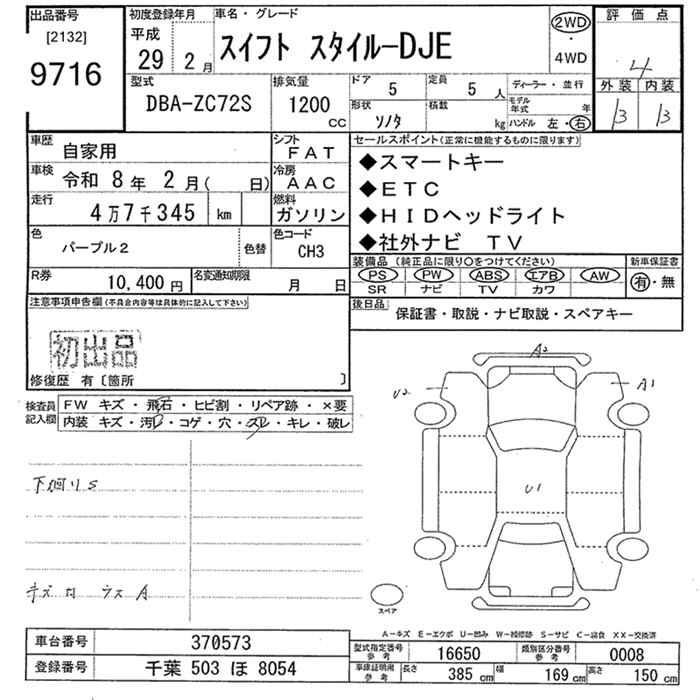 出品番号 初度登録年月 車名・グレード 2WD 評価点
[2132] 平成 スイフト スタイルーDJE ・ 4
9716 29年 2月 4WD 外装 内装
型式 排気量 ドア 5 定員 5人 ディーラー・並行 B B
DBA-ZC72S 1200 CC 形状 ソノタ 積載 kg モデル年式 年
ハンドル 左・右
車歴 自家用 シフト FAT セールスポイント(正常に機能するものに限ります)
車検 令和 8年 2月( 日) 冷房 AAC ◆スマートキー
走行 4万7千345 km 燃料 ガソリン ◆ETC
◆HIDヘッドライト
色 パープル2 色替 色コード CH3 ◆社外ナビ TV
装備品 (純正品に限り○をつけてください) 新車保証書
R券 10,400円 名変通知期限 月 日 PS PW ABS エアB AW 有・無
SR ナビ TV カワ
注意事項申告欄(不具合内容等は具体的に記入して下さい) 後日品 保証書・取説・ナビ取説・スペアキー
初出品
修復歴 有〔箇所 〕
検査員記入欄 FW キズ・飛石・ヒビ割・リペア跡・×要
内装 キズ・汚レ・コゲ・穴・スレ・キレ・破レ
A2
U2 A1
下廻りS
U1
スペア
A-キズ E-エクボ U-凹み W-補修跡 S-サビ C-腐食 XX-交換済
車台番号 370573 型式指定番号 参考 16650 類別区分番号 参考 0008
登録番号 千葉 503 ほ 8054 車庫証明用 参考 長さ 385 cm 幅 169 cm 高さ 150 cm